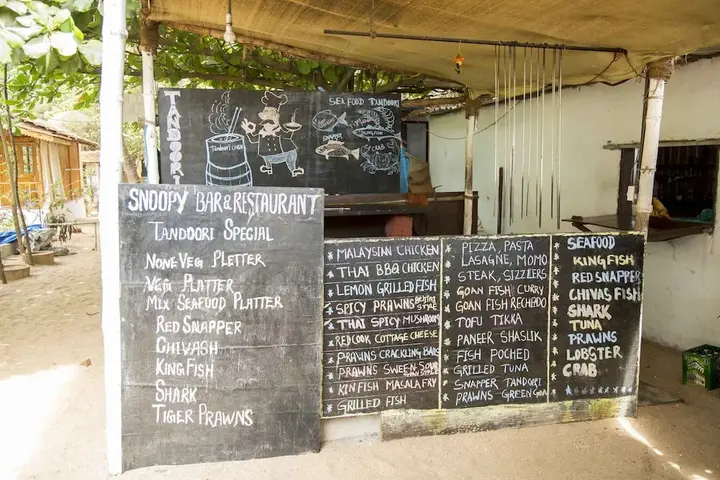 TANDOORI
TANDOORI OVEN
SEA FOOD TANDOORI
SNAPPER
CRAB
SNOOPY BAR & RESTAURANT
TANDOORI SPECIAL
NONE VEG PLETTER
VEG PLATTER
MIX SEAFOOD PLATTER
RED SNAPPER
CHIVASH
KING FISH
SHARK
TIGER PRAWNS
MALAYSIAN CHICKEN
THAI BBQ CHICKEN
LEMON GRILLED FISH
SPICY PRAWNS BEIJING STYLE
THAI SPICY MUSHROOM
RED COOK COTTAGE CHEESE
PRAWNS CRACKLING BARS
PRAWNS SWEEN SOUR
KIN FISH MASALA FRY
GRILLED FISH
PIZZA, PASTA
LASAGNE, MOMO
STEAK, SIZZLERS
GOAN FISH CURRY
GOAN FISH RECHEDO
TOFU TIKKA
PANEER SHASLIK
FISH POCHED
GRILLED TUNA
SNAPPER TANDOORI
PRAWNS GREEN GOA
SEAFOOD
KING FISH
RED SNAPPER
CHIVAS FISH
SHARK
TUNA
PRAWNS
LOBSTER
CRAB